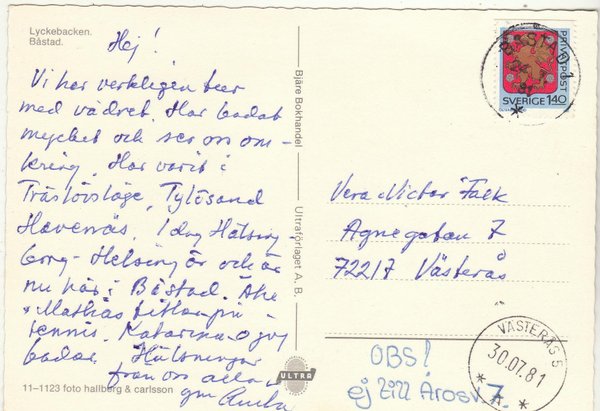 Lyckebacken.
Båstad.
Hej!
Vi har verkligen
med vädret. Har badat
mycket och ser oss om-
kring. Har varit i
Träslövsläge, Tylösand
I dag Hälsing
borg - Helsingör och är
nu här i Båstad. Åke
+ Mathias tittar på
tennis. Katarina o jag
badar. Hälsningar
från oss alla
gm
11-1123 foto hallberg & carlsson
Bjäre Bokhandel
Ultraförlaget A. B.
ULTRA
BÅSTAD 1
PRIVATPOST
SVERIGE 140
Vera o Victor Falk
Agnegatan 7
72217 Västerås
VÄSTERÅS 5
30.07.81
OBS!
ej till Arosv 7.